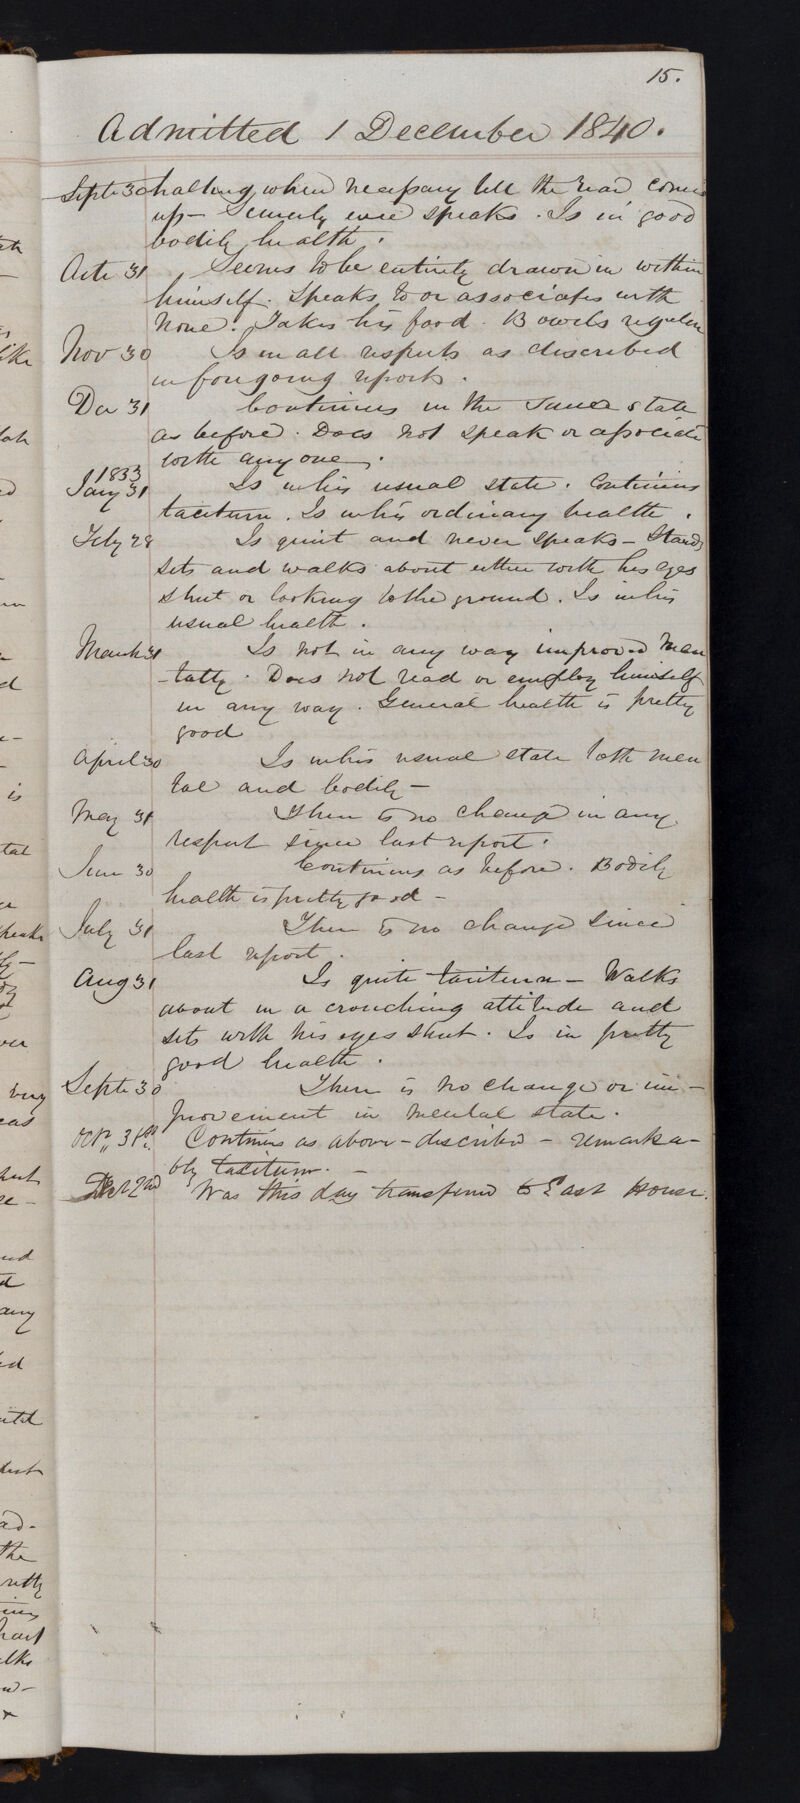 15.
Admitted 1 December 1840.
Sept 30 halting when necessary till the rear comes
up - Scarcely ever speaks. Is in good
bodily health.
Octr 31 Seems to be entirely drawn in within
himself. Speaks to or associates with
none. Takes his food. Bowels regular
Nov 30 Is in all respects as described
in foregoing reports.
Der 31 Continues in the same state
as before. Does not speak or associate
with any one.
1833
Jany 31 Is in his usual state. Continues
taciturn. Is in his ordinary health.
Feby 28 Is quiet and never speaks - Stands
sits and walks about either with his eyes
shut or looking to the ground. Is in his
usual health.
March 31 Is not in any way improved men
-tally. Does not read or employ himself
in any way. General health is pretty
good
April 30 Is in his usual state both men
tal and bodily -
May 31 There is no change in any
respect since last report.
June 30 Continues as before. Bodily
health is pretty good -
July 31 There is no change since
last report.
Aug 31 Is quite taciturn - Walks
about in a crouching attitude and
sits with his eyes shut. Is in pretty
good health.
Septr 30 There is no change or im-
provement in mental state.
Octr 31st. Continues as above-described - remarka-
bly taciturn. -
2nd Was this day transferred to East House.